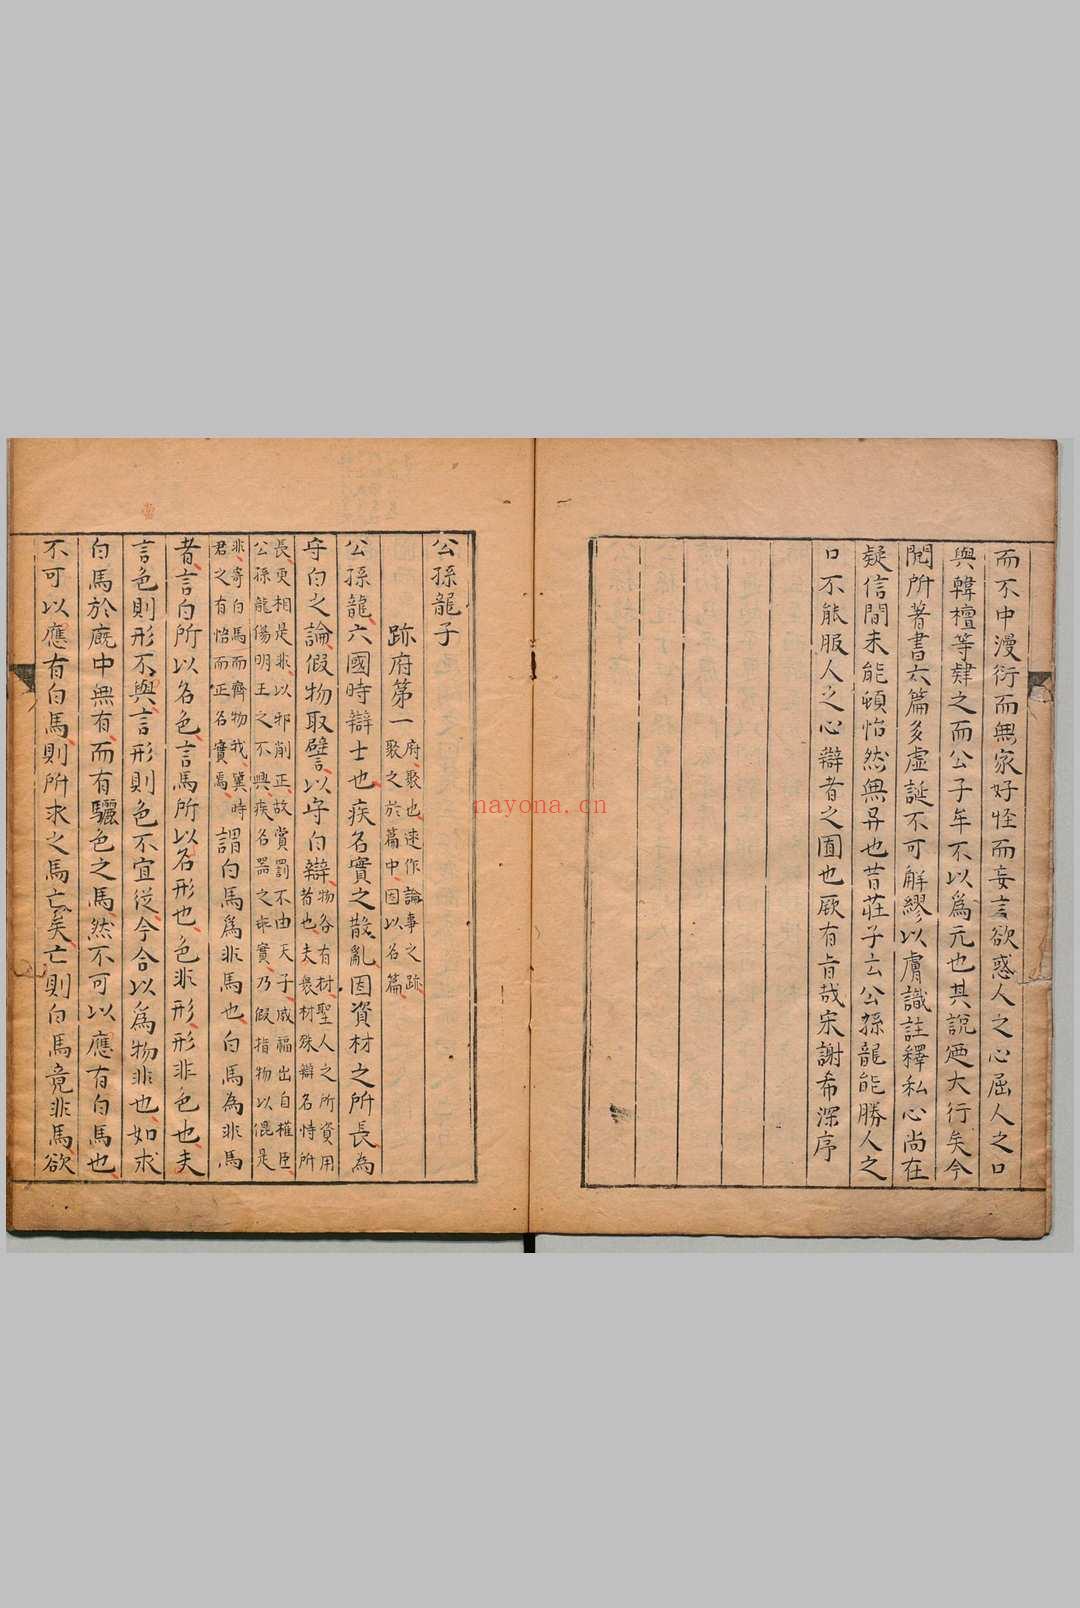 而不中漫衍而無家好怪而妄言欲惑人之心屈人之口
與韓檀等肄之而公子牟不以為尤也其說迺大行矣今
閱所著書六篇多虛誕不可解繆以膚識註釋私心尚在
疑信間未能頓怡然無异也昔莊子云公孫龍能勝人之
口不能服人之心辯者之囿也厥有旨哉宋謝希深序
公孫龍子
跡府第一
府聚也述作論事之跡
聚之於篇中因以名篇
公孫龍六國時辯士也疾名實之散亂因資材之所長為
守白之論假物取譬以守白辯
物各有材聖人之所資用
者也夫衆材殊辯各恃所
長更相是非以邪削正故賞罰不由天子威福出自權臣
公孫龍傷明王之不興疾名器之乖實乃假指物以混是
非寄白馬而齊物我冀時
君之有悟而正名實焉
謂白馬爲非馬也白馬為非馬
者言白所以名色言馬所以名形也色非形形非色也夫
言色則形不與言形則色不宜從今合以為物非也如求
白馬於廐中無有而有驪色之馬然不可以應有白馬也
不可以應有白馬則所求之馬亡矣亡則白馬竟非馬欲
nayona.cn